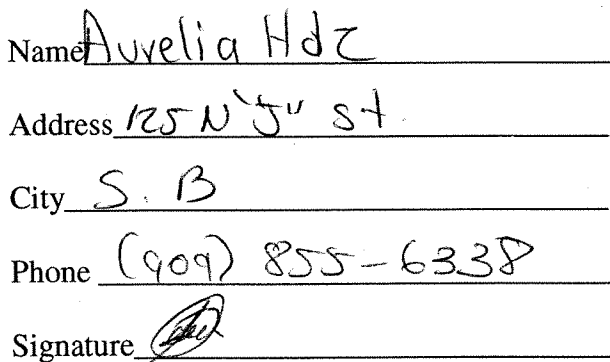 Name Aurelia Hdz
Address 125 N "J" St.
City S. B
Phone (909) 855-6338
Signature